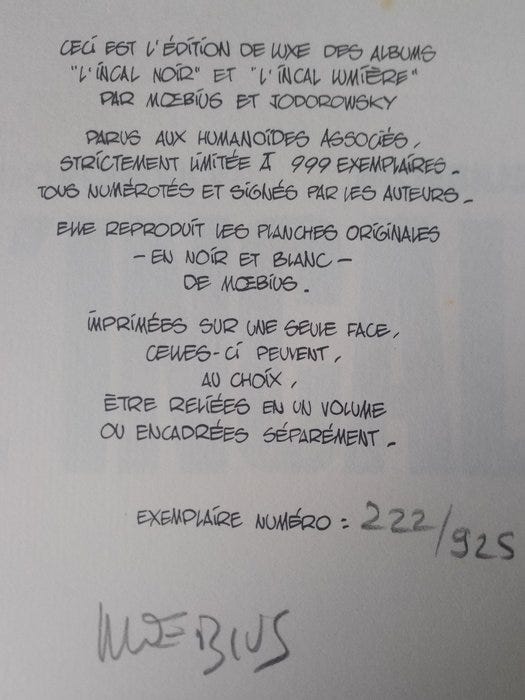 CECI EST L'ÉDITION DE LUXE DES ALBUMS
"L'INCAL NOIR" ET "L'INCAL LUMIÈRE"
PAR MŒBIUS ET JODOROWSKY
PARUS AUX HUMANOÏDES ASSOCIÉS,
STRICTEMENT LIMITÉE À 999 EXEMPLAIRES_
TOUS NUMÉROTÉS ET SIGNÉS PAR LES AUTEURS_
ELLE REPRODUIT LES PLANCHES ORIGINALES
– EN NOIR ET BLANC –
DE MŒBIUS_
IMPRIMÉES SUR UNE SEULE FACE,
CELLES-CI PEUVENT,
AU CHOIX,
ÊTRE RELIÉES EN UN VOLUME
OU ENCADRÉES SÉPARÉMENT_
EXEMPLAIRE NUMÉRO : 222/925
MŒBIUS